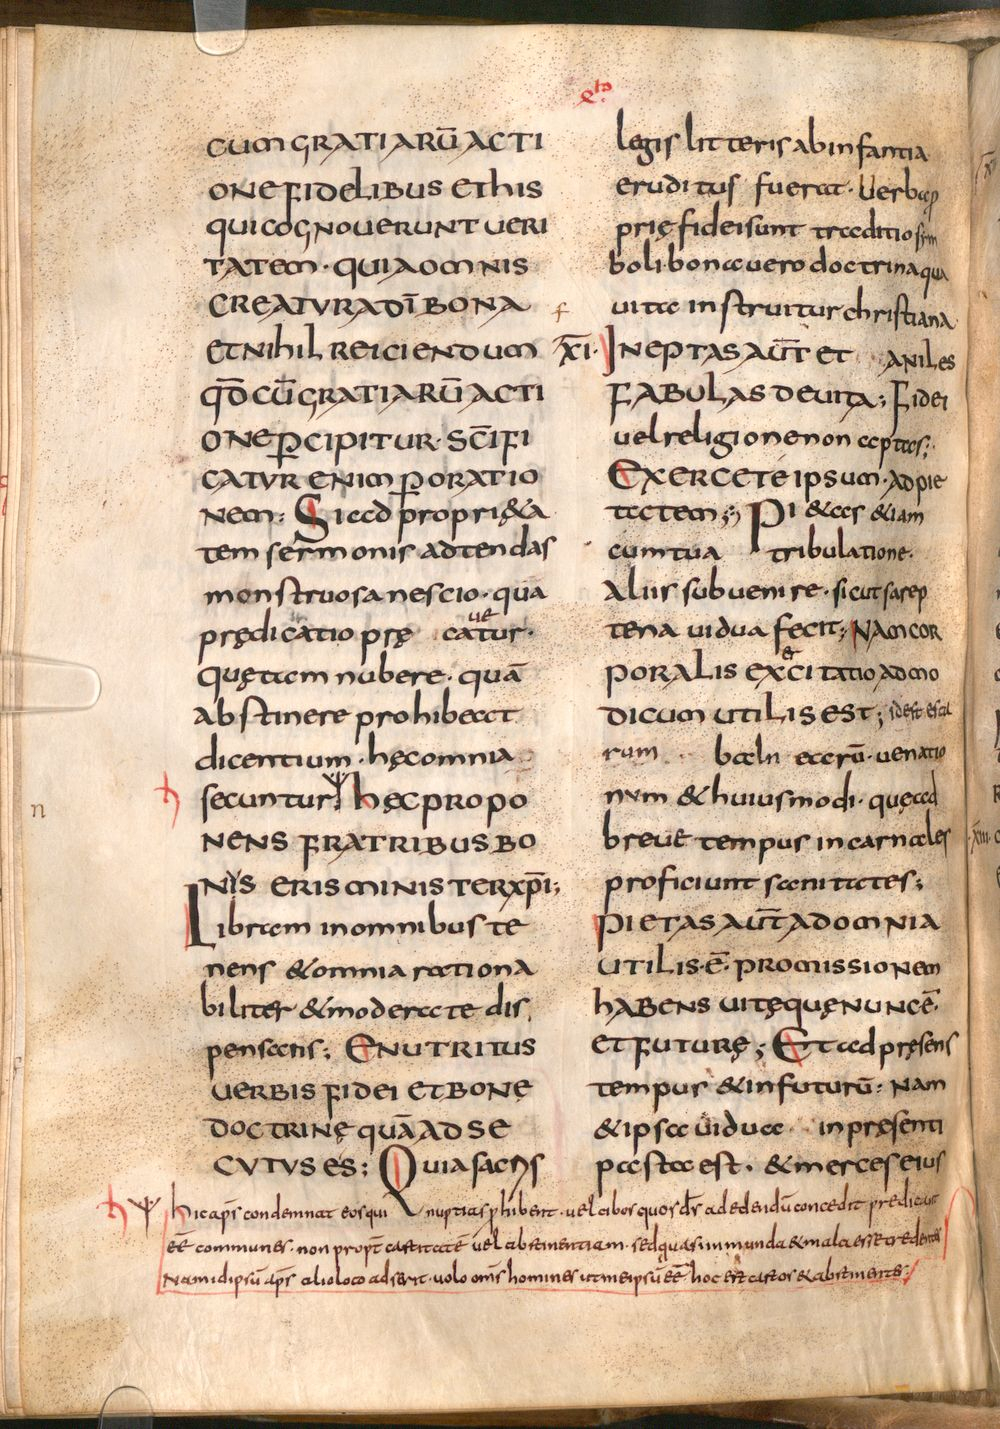 cum gratiarū acti
one fidelibus et his
qui cognouerunt ueri
tatem · quia omnis
creatura dī bona
et nihil reiciendum
qđ cū gratiarū acti
one ꝑcipitur · Scīfi
catur enim ꝑ oratio
nem : Si ad proprię &a
tem sermonis adtendas
monstruosa nescio · qua
prędicatio pręcatur ·
ue
quę tam nubere · quā
abstinere prohibeat
dicentium · hęc omnia
secuntur ; hęc propo
nens fratribus bo
nis eris minister xp̄i ;
Libram in omnibus te
nens & omnia rationa
biliter & moderate dis
pensans ; Enutritus
uerbis fidei et bonę
doctrinę quā adse
cutus es ; Quia sacris
legis litteris ab infantia
eruditus fuerat · Uerba ꝓ
prię fidei sunt traditio sym
boli · bona uero doctrina qua
uita instruitur christiana
xī · Ineptas aūt et aniles
fabulas deuita ; Fidei
uel religione non aptas ;
Exerce te ipsum · ad pie
tatem ; Pi&as &iam
cum tua tribulatione ·
Aliis subuenire · sicut sarep
tena uidua fecit ; Nam cor
poralis exercitatio ad mo
dicum utilis est ; idest escu
rum balnearū · uenatio
num & huiusmodi · quę ad
breue tempus in carnales
proficiunt sanitates ;
Pietas aūt ad omnia
utilis · ē · promissionem
habens uitę quę nunc ē ·
et futurę ; Et ad pręsens
tempus & in futurū : Nam
& ipsa uidua in pręsenti
pasta est · & merces eius
hic apɫs condemnat eos qui nuptias ꝓhibent · uel cibos quos dr̄ ad edendū concedit predicant
eē communes · non propt castitatē uel abstinentiam · sed quasi inmunda & mala esse credentes
Nam id ipsū apɫs alio loco adserit · uolo om̄s homines ut me ipsū eē hoc est castos & abstinentes ;
n